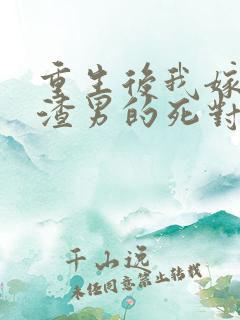 重生後我嫁
渣男的死對
千山远
未经同意禁止转载